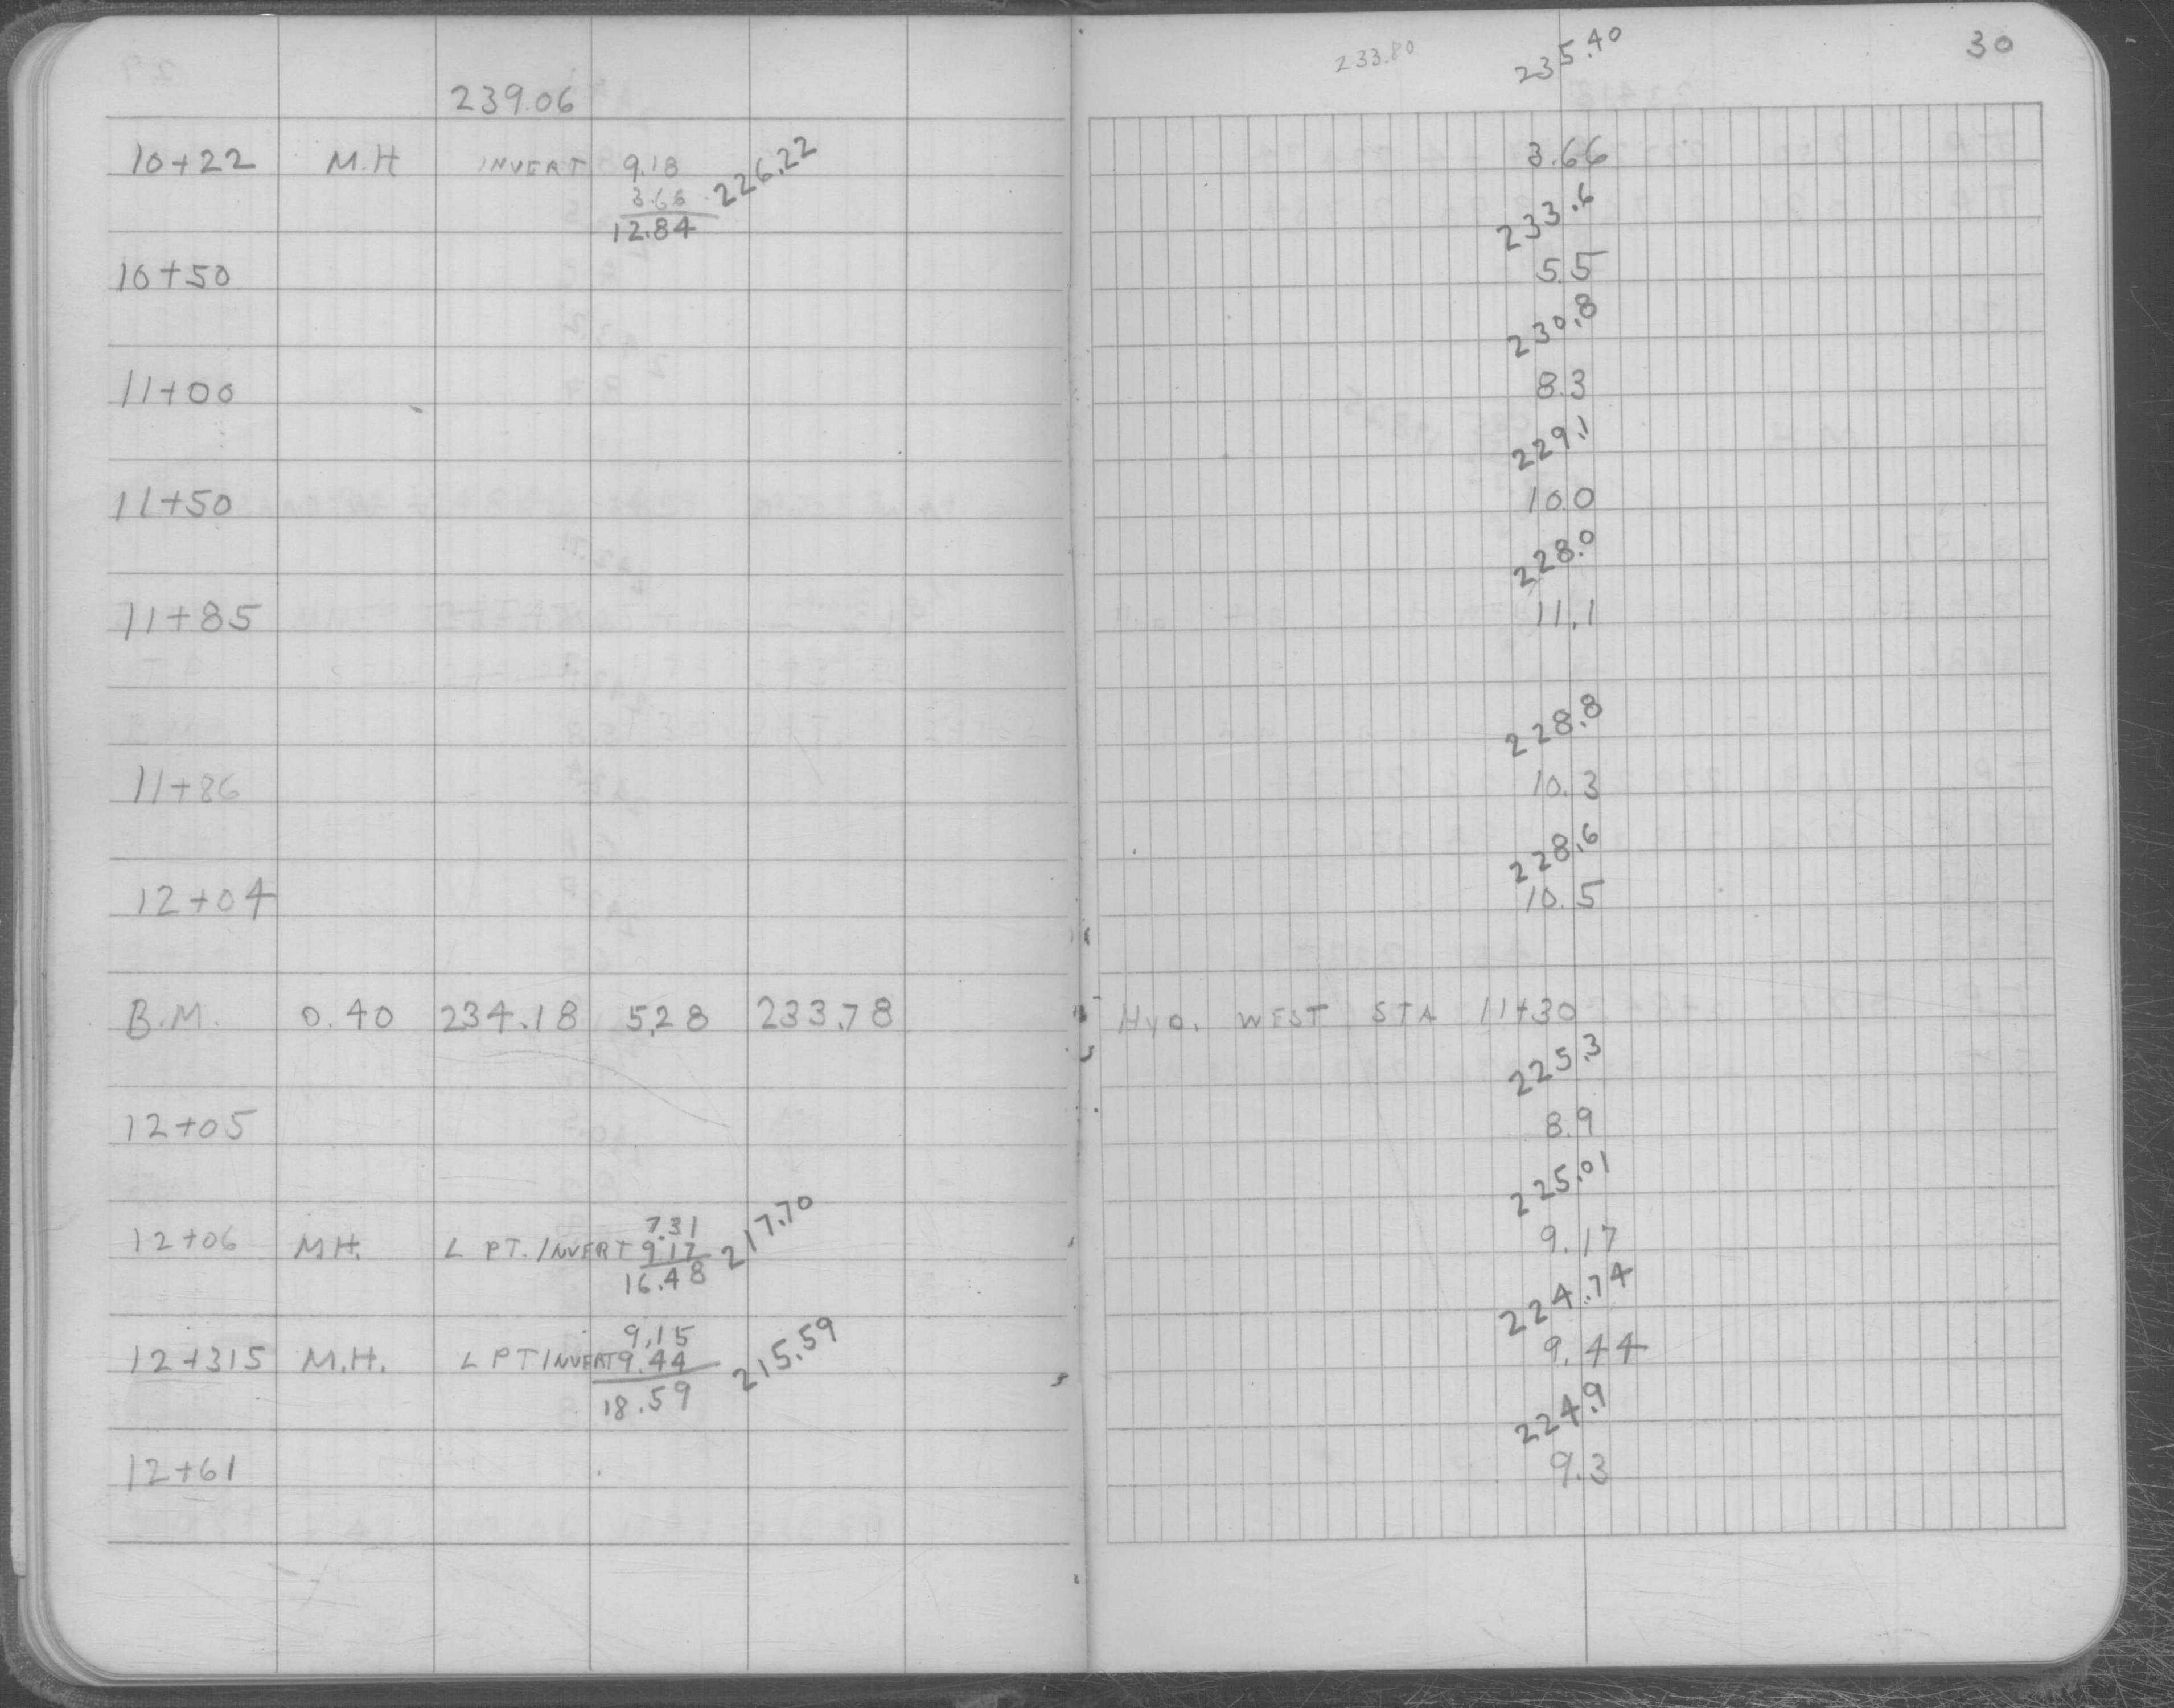 30
233.80 235.40
239.06
10+22 M.H INVERT 9.18 226.22 3.66
3.66
12.84
233.6
10+50 5.5
230.8
11+00 8.3
229.1
11+50 10.0
228.0
11+85 11.1
228.8
11+86 10.3
228.6
12+04 10.5
B.M. 0.40 234.18 5.28 233.78 HYD. WEST STA 11+30
225.3
12+05 8.9
225.01
7.31
12+06 MH. L PT. INVERT 9.17 217.70 9.17
16.48
224.74
9.15
12+315 M.H. L PT INVERT 9.44 215.59 9.44
18.59
224.9
12+61 9.3